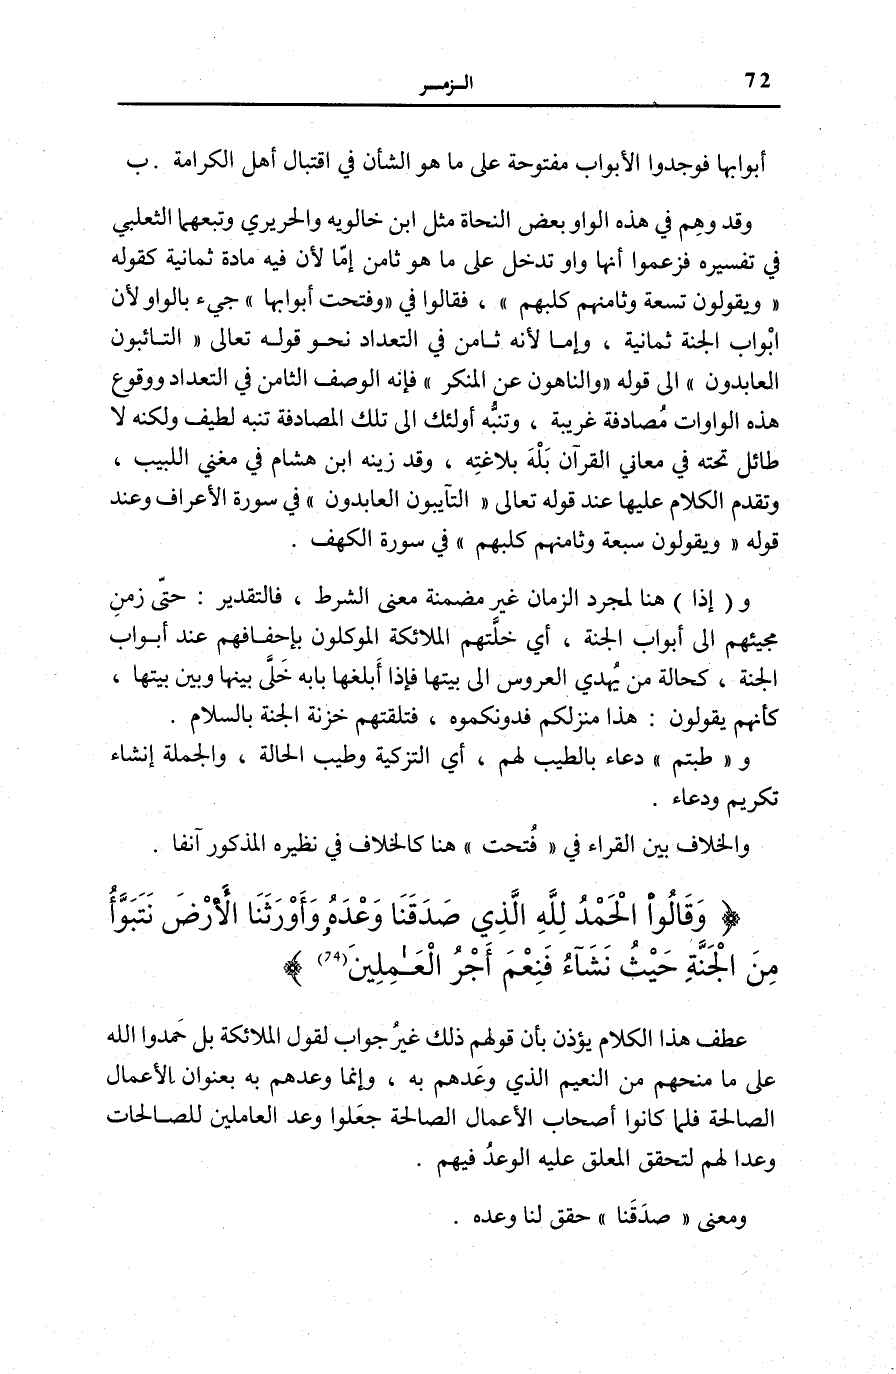 72
الـزمـــر
أبوابها فوجدوا الأبواب مفتوحة على ما هو الشأن في اقتبال أهل الكرامة . ب
وقد وهِم في هذه الواو بعض النحاة مثل ابن خالويه والحريري وتبعهما الثعلبي
في تفسيره فزعموا أنها واو تدخل على ما هو ثامن إمّا لأن فيه مادة ثمانية كقوله
« ويقولون تسعة وثامنهم كلبهم » ، فقالوا في «وفتحت أبوابها » جيء بالواو لأن
ابْواب الجنة ثمانية ، وإمـا لأنه ثـامن في التعداد نحـو قولـه تعالى « التـائبون
العابدون » الى قوله «والناهون عن المنكر » فإنه الوصف الثامن في التعداد ووقوع
هذه الواوات مُصادفة غريبة ، وتنبُّه أولئك الى تلك المصادفة تنبه لطيف ولكنه لا
طائل تحته في معاني القرآن بَلْهَ بلاغتِه ، وقد زينه ابن هشام في مغني اللبيب ،
وتقدم الكلام عليها عند قوله تعالى « التآيبون العابدون » في سورة الأعراف وعند
قوله « ويقولون سبعة وثامنهم كلبهم » في سورة الكهف .
و ( إذا ) هنا لمجرد الزمان غير مضمنة معنى الشرط ، فالتقدير : حتّى زمنِ
مجيئهم الى أبواب الجنة ، أي خلَّتهم الملائكة الموكلون بإحفـافهم عند أبـواب
الجنة ، كحالة من يُهدي العروس الى بيتها فإذا أَبلغها بابه خَلَّى بينها وبين بيتها ،
كأنهم يقولون : هذا منزلكم فدونكموه ، فتلقتهم خزنة الجنة بالسلام .
و « طبتم » دعاء بالطيب لهم ، أي التزكية وطيب الحالة ، والجملة إنشاء
تكريم ودعاء .
والخلاف بين القراء في « فُتحت » هنا كالخلاف في نظيره المذكور آنفا .
﴿ وَقَالُواْ الْحَمْدُ لِلَّهِ الَّذِي صَدَقَنَا وَعْدَهُۥ وَأَوْرَثَنَا الْأَرْضَ نَتَبَوَّأُ
مِنَ الْجَنَّةِ حَيْثُ نَشَآءُ فَنِعْمَ أَجْرُ الْعَـٰمِلِينَ (74) ﴾
عطف هذا الكلام يؤذن بأن قولهم ذلك غيرُ جواب لقول الملائكة بل حَمدوا الله
على ما منحهم من النعيم الذي وعَدهم به ، وإنما وعدهم به بعنوان الأعمال
الصالحة فلما كانوا أصحاب الأعمال الصالحة جعَلوا وعد العاملين للصـالحات
وعدا لهم لتحقق المعلق عليه الوعدُ فيهم .
ومعنى « صدَقَنا » حقق لنا وعده .